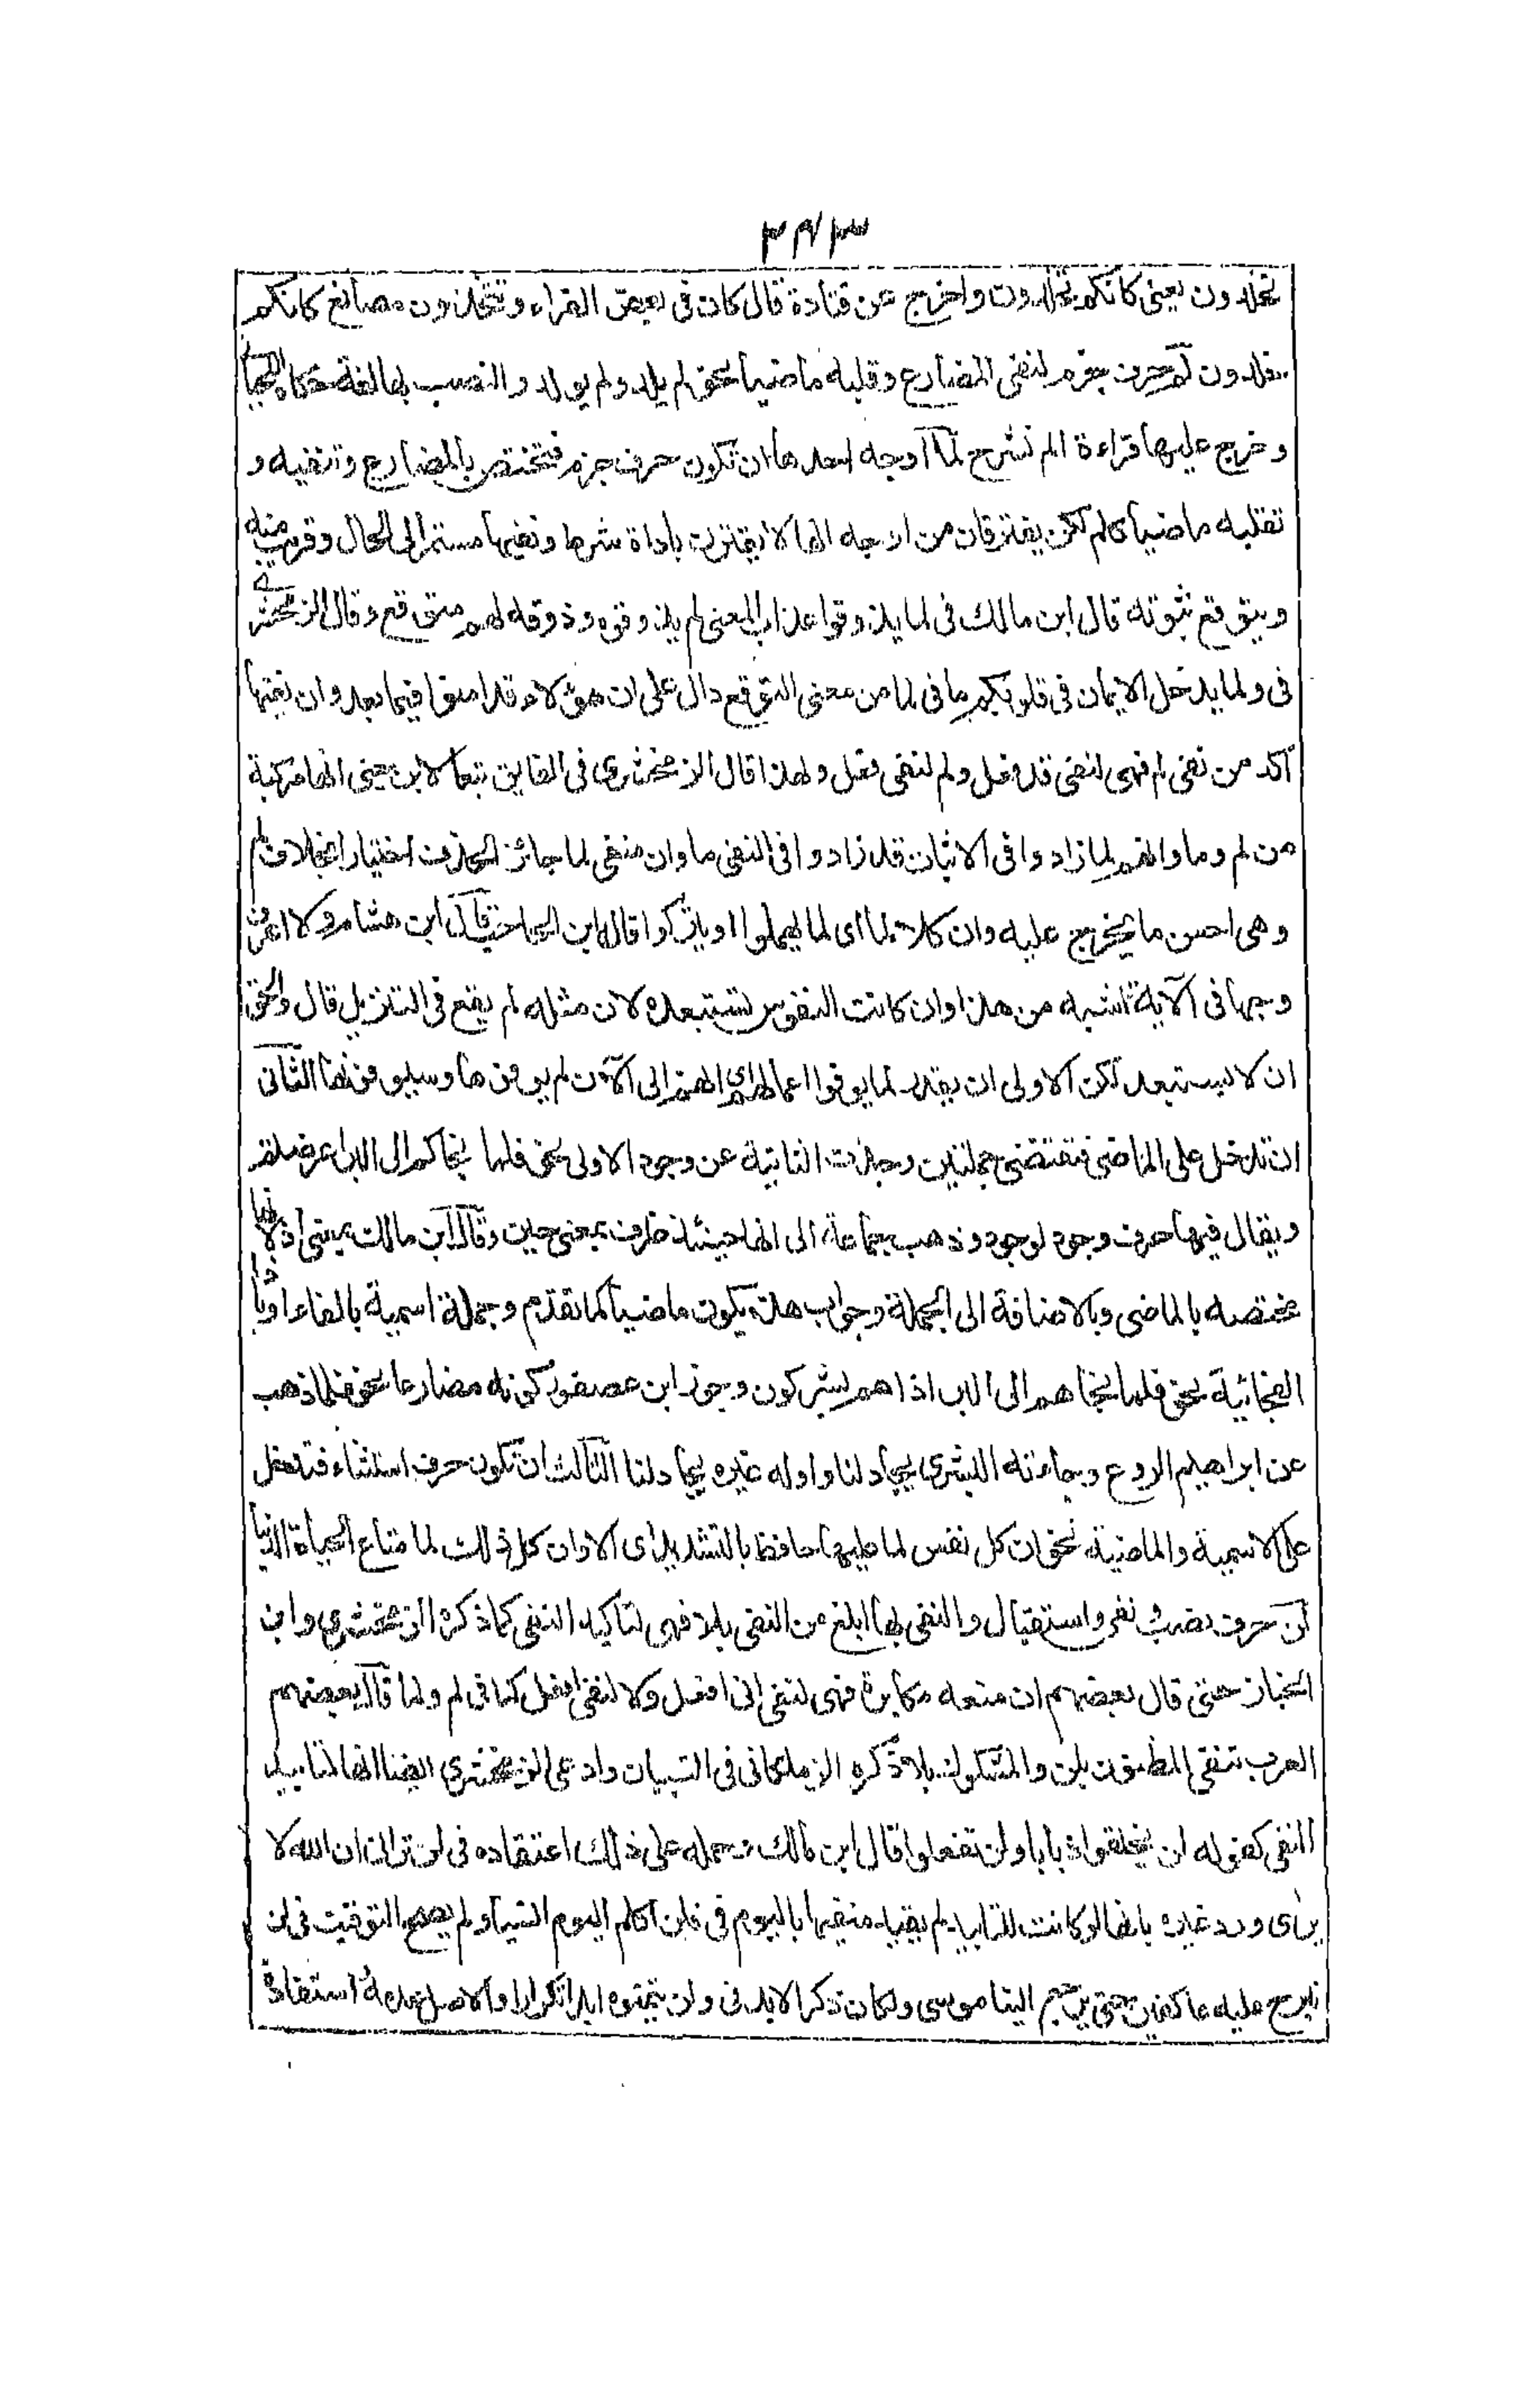 ٣٨٣
تخلدون يعنى كانكم تخلدون واخرج عن قتادة قال كان فى بعض القراءة وتتخذون مصانع كانكم
خلدون لم حرف جزم لنفى المضارع وقلبه ماضيا نحو لم يلد ولم يولد والنصب بها لغة حكاه اللحيانى
وخرج عليها قراءة الم نشرح لما اوجه احدها ان تكون حرف جزم فتختص بالمضارع وتنفيه و
تقلبه ماضيا كلم لكن يفترقان من اوجه انها لا تقترن باداة شرط ونفيها مستمر الى الحال وقريب منه
ويتوقع ثبوته قال ابن مالك فى لما يذوقوا عذاب المعنى لم يذوقوه وذوقه لهم متوقع وقال الزمخشرى
فى ولما يدخل الايمان فى قلوبكم ما فى لما من معنى التوقع دال على ان هؤلاء قد امنوا فيما بعد وان نفيها
آكد من نفى لم فهى لنفى قد فعل ولم لنفى فعل ولهذا قال الزمخشرى فى الفايق تبعا لابن جنى انها مركبة
من لم وما وانهم لما زادوا فى الاثبات قد زادوا فى النفى ما وان منفى لما جائز الحذف اختيارا بخلاف لم
وهى احسن ما يخرج عليه وان كلا لما اى لما يهملوا او يتركوا قاله ابن الحاجب قال ابن هشام ولا اعرف
وجها فى الآية اشبه من هذا وان كانت النفوس تستبعده لان مثله لم يقع فى التنزيل قال والحق
ان لا يستبعد لكن الاولى ان يقدر لما يوفوا اعمالهم اى انهم الى الآن لم يوفوها وسيوفونها الثانى
ان تدخل على الماضى فتقتضى جملتين وجدت الثانية عن وجود الاولى نحو فلما نجاكم الى البر اعرضتم
ويقال فيها حرف وجود لوجود وذهب جماعة الى انها حينئذ ظرف بمعنى حين وقال ابن مالك بمعنى اذ لانها
مختصه بالماضى وبالاضافة الى الجملة وجواب هذه يكون ماضيا كما تقدم وجملة اسمية بالفاء او باذا
الفجائية نحو فلما نجاهم الى البر اذا هم يشركون وجوز ابن عصفور كونه مضارعا نحو فلما ذهب
عن ابراهيم الروع وجاءته البشرى يجادلنا واوله غيره بجادلنا الثالث ان تكون حرف استثناء فتدخل
على الاسمية والماضية نحو ان كل نفس لما عليها حافظ بالتشديد اى الا وان كل ذلك لما متاع الحياة الدنيا
لن حرف نصب ونفى واستقبال والنفى بها ابلغ من النفى بلا فهى لتاكيد النفى كما ذكره الزمخشرى وابن
الخباز حتى قال بعضهم ان منعه مكابرة فهى لنفى انى افعل ولا لنفى افعل كما فى لم ولما قال بعضهم
العرب تنفى المظنون بلن والمشكوك بلا ذكره الزملكانى فى التبيان وادعى الزمخشرى ايضا انها لتابيد
النفى كقوله لن يخلقوا ذبابا ولن تفعلوا قال ابن مالك وحمله على ذلك اعتقاده فى لن ترانى ان الله لا
يرى ورد غيره بانها لو كانت للتابيد لم يقيد منفيها باليوم فى فلن اكلم اليوم انسيا ولم يصح التوقيت فى لن
نبرح عليه عاكفين حتى يرجع الينا موسى ولكان ذكر الابد فى ولن يتمنوه ابدا تكرارا والاصل عدمه استفادة